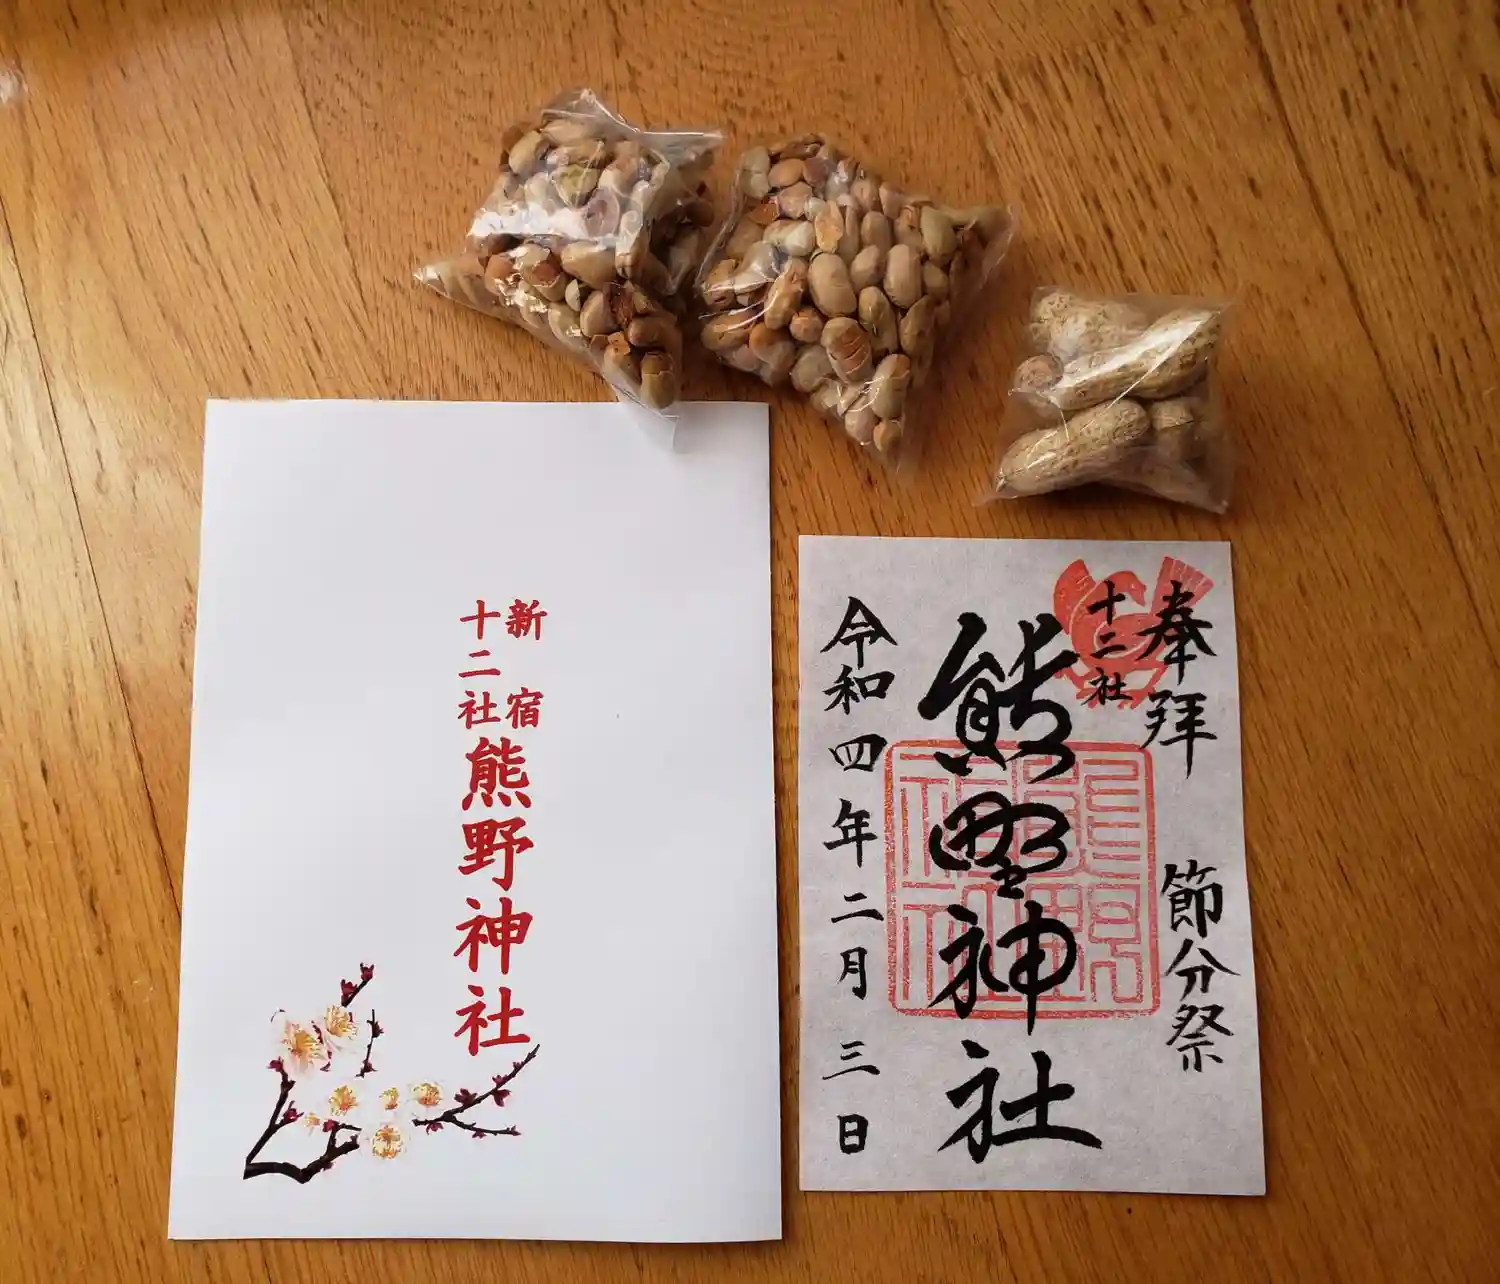 新宿
十二社
熊野神社
奉拝
節分祭
十二社
熊野神社
令和四年二月三日
熊野
神社